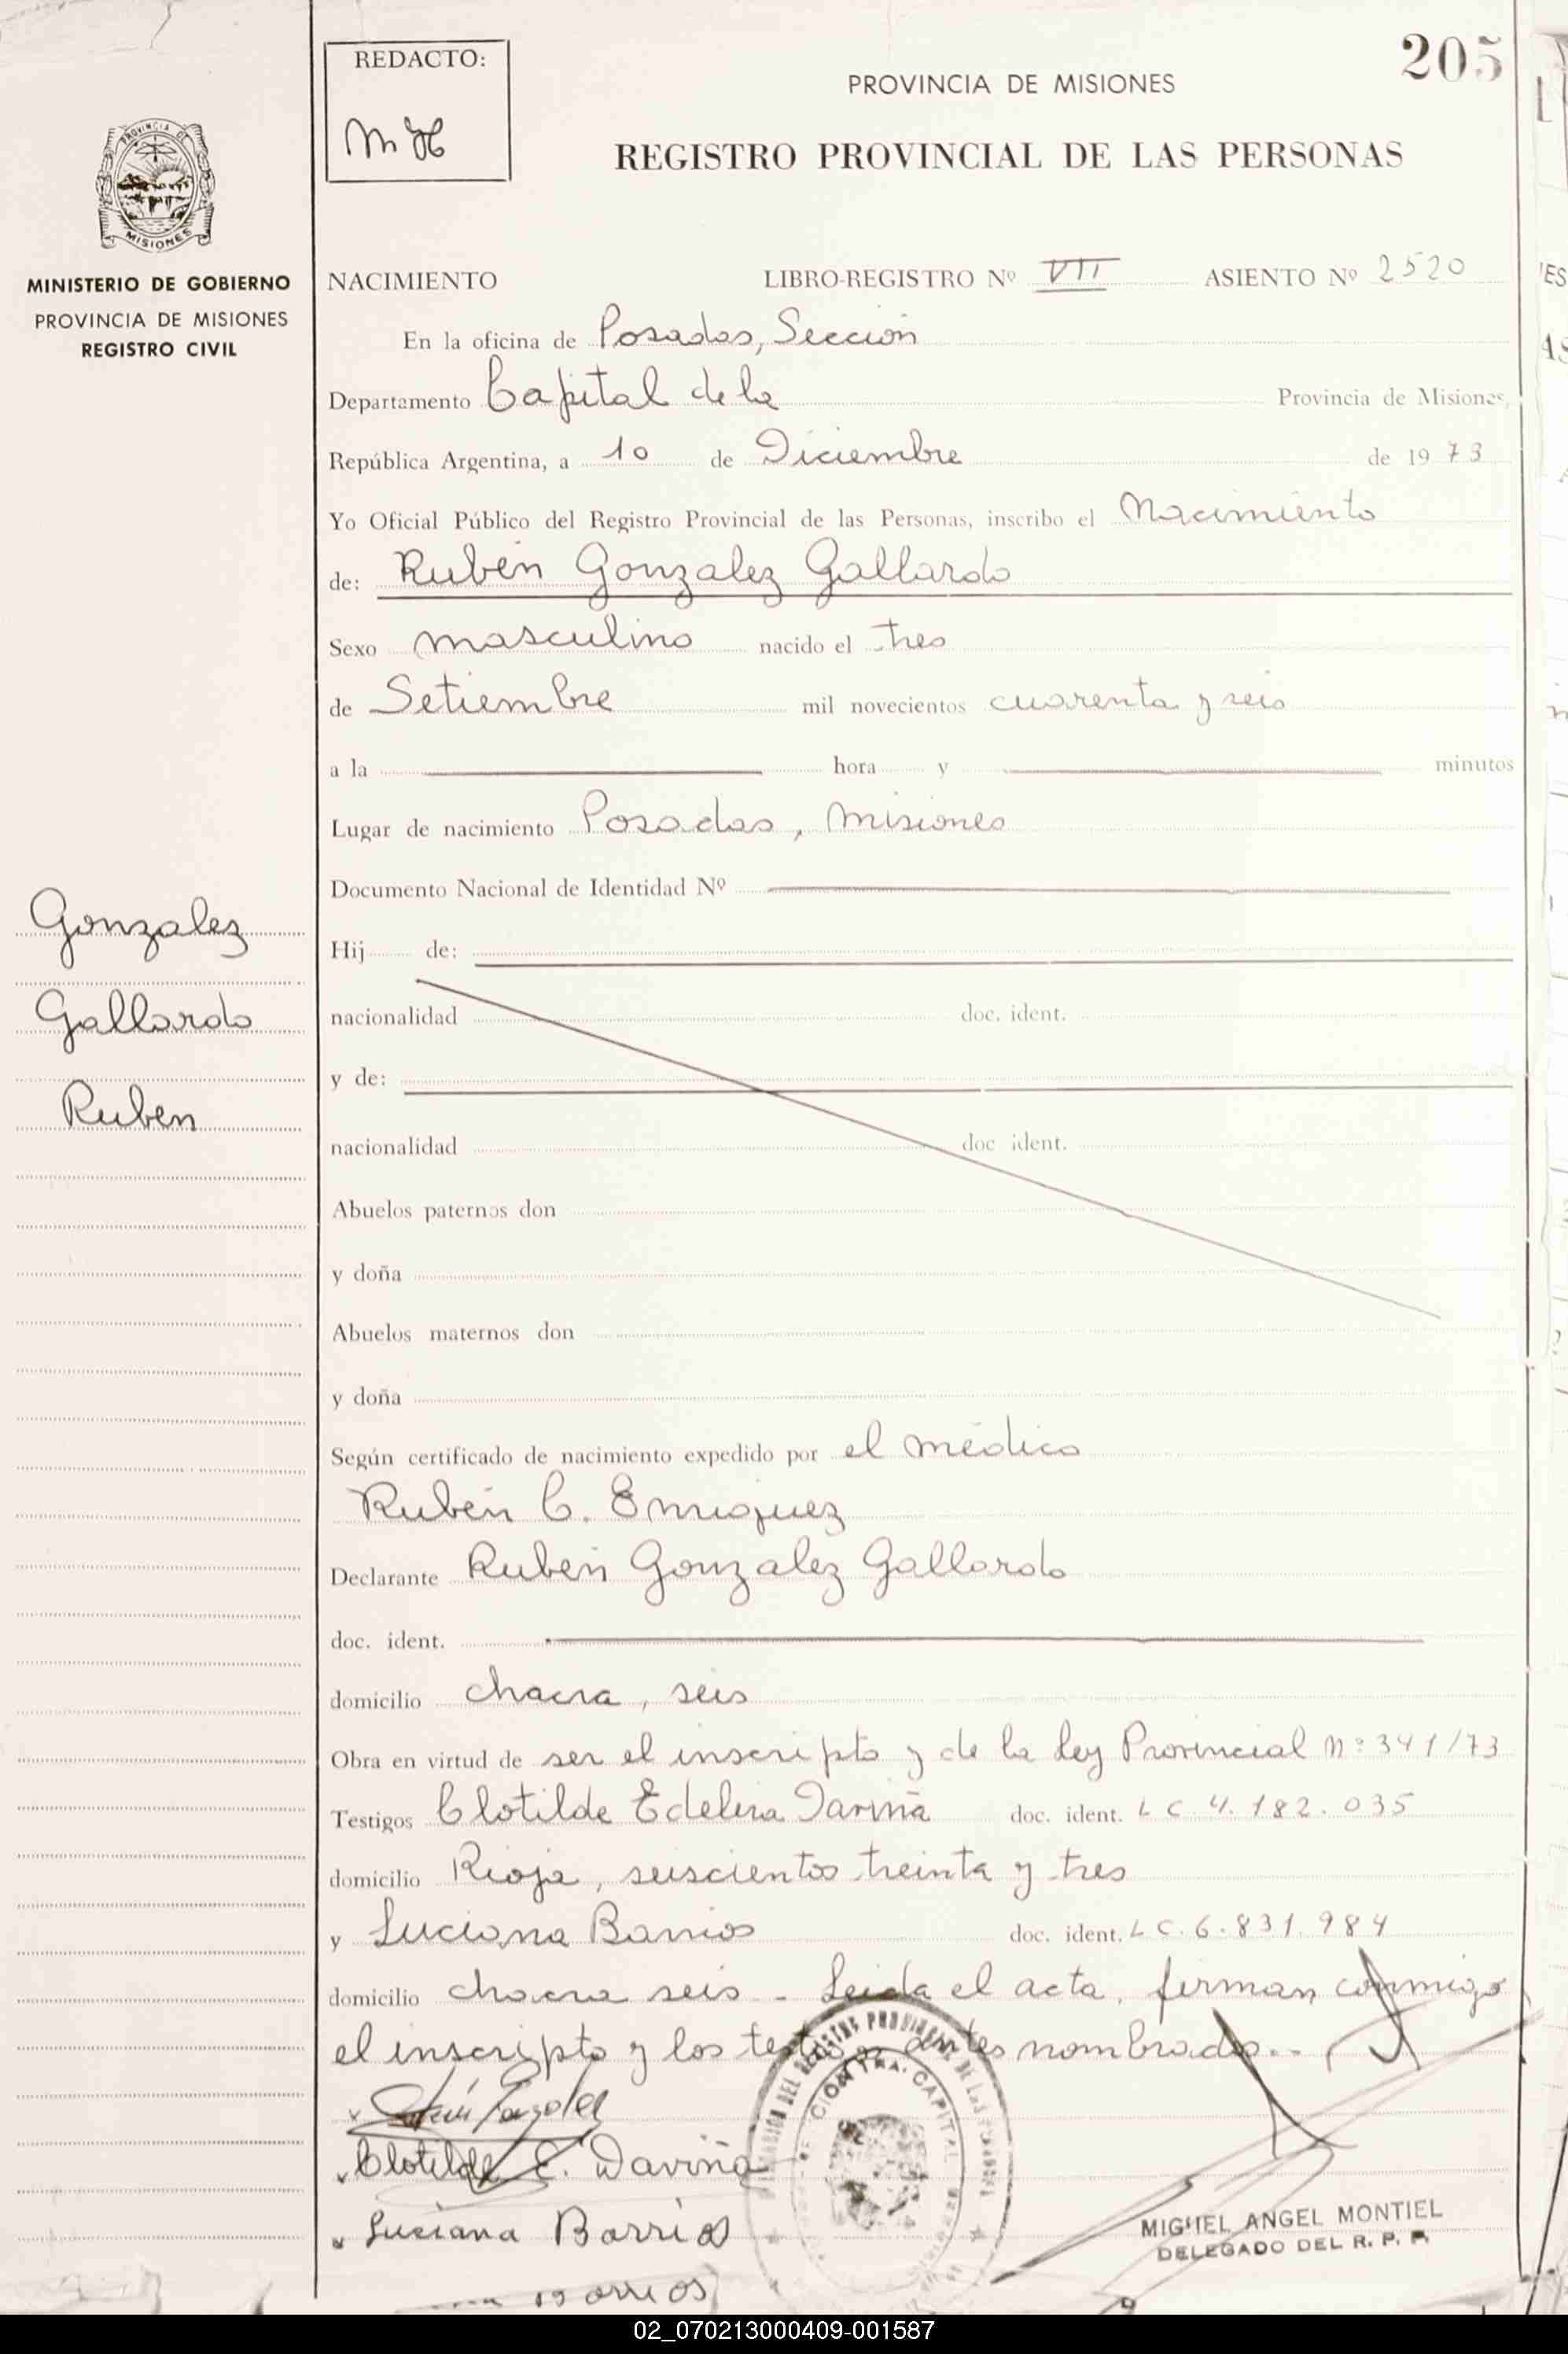 REDACTO:
205
PROVINCIA DE MISIONES
REGISTRO PROVINCIAL DE LAS PERSONAS
PROVINCIA DE
MISIONES
MINISTERIO DE GOBIERNO
PROVINCIA DE MISIONES
REGISTRO CIVIL
NACIMIENTO LIBRO-REGISTRO Nº VII ASIENTO Nº 2520
En la oficina de Posadas, Sección
Departamento Capital de la Provincia de Misiones,
República Argentina, a 10 de Diciembre de 1973
Yo Oficial Público del Registro Provincial de las Personas, inscribo el Nacimiento
de: Rubén Gonzalez Gallardo
Sexo masculino nacido el tres
de Setiembre mil novecientos cuarenta y seis
a la hora y minutos
Lugar de nacimiento Posadas, Misiones
Documento Nacional de Identidad Nº
Gonzalez
Gallardo
Ruben
Hij de:
nacionalidad doc. ident.
y de:
nacionalidad doc ident.
Abuelos paternos don
y doña
Abuelos maternos don
y doña
Según certificado de nacimiento expedido por el médico
Rubén C. Enriquez
Declarante Rubén Gonzalez Gallardo
doc. ident.
domicilio chacra, seis
Obra en virtud de ser el inscripto y de la ley Provincial Nº 341/73
Testigos Clotilde Edelira Dariña doc. ident. LC 4.182.035
domicilio Rioja, seiscientos treinta y tres
y Luciana Barrios doc. ident. LC. 6.831.984
domicilio chacra seis - Leida el acta, firman conmigo
el inscripto y los testigos antes nombrados.-
Clotilde E. Daviña
Luciana Barrios
MIGUEL ANGEL MONTIEL
DELEGADO DEL R. P. P.
02_070213000409-001587